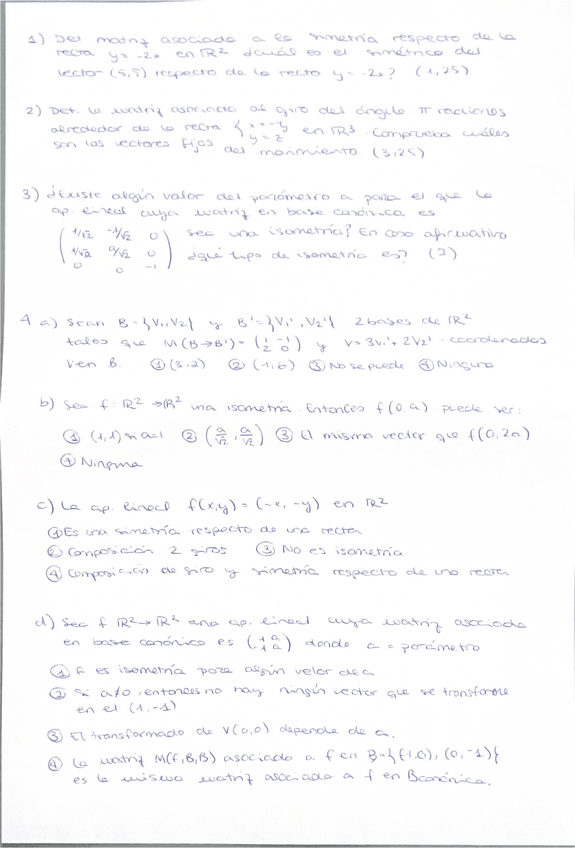 1) Det matriz asociada a la simetría respecto de la
recta y=-2x en ℝ² ¿cuál es el simétrico del
vector (5,5) respecto de la recta y=-2x? (1,25)
2) Det. la matriz asociada al giro del ángulo π radianes
alrededor de la recta { x=-y y=z en ℝ³. Comprueba cuáles
son los vectores fijos del movimiento (3,25)
3) ¿Existe algún valor del parámetro a para el que la
ap. lineal cuya matriz en base canónica es
(1/√2 -1/√2 0
1/√2 a/√2 0
0 0 -1) sea una isometría? En caso afirmativo
¿qué tipo de isometría es? (2)
4 a) Sean B={V₁,V₂} y B'={V₁',V₂'} 2 bases de ℝ²
tales que M(B→B')=(1 -1 2 0) y V=3V₁'+2V₂'. coordenadas
V en B. ① (3,2) ② (1,6) ③ No se puede ④ Ninguna
b) Sea f: ℝ²→ℝ² una isometría. Entonces f(0,a) puede ser:
① (1,1) si a=1 ② (a/√2, a/√2) ③ El mismo vector que f(0,2a)
④ Ninguna
c) La ap. lineal f(x,y)=(-x,-y) en ℝ²
① Es una simetría respecto de una recta
② Composición 2 giros ③ No es isometría
④ Composición de giro y simetría respecto de una recta
d) Sea f: ℝ²→ℝ² una ap. lineal cuya matriz asociada
en base canónica es (-1 a -1 a) donde a = parámetro
① f es isometría para algún valor de a
② Si a≠0, entonces no hay ningún vector que se transforme
en el (1,-1)
③ El transformado de V(0,0) depende de a.
④ La matriz M(f,B,B) asociada a f en B={(1,0),(0,-1)}
es la misma matriz asociada a f en Bcanónica.